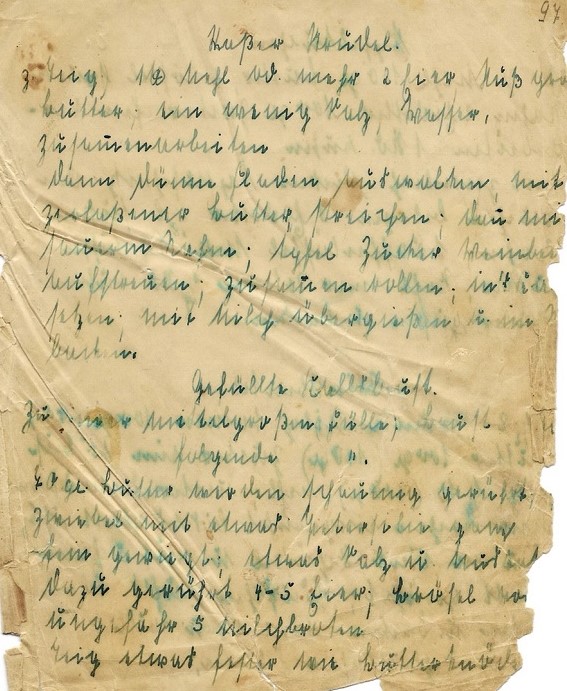 97.
Rahm Strudel.
z. Teig 1 ℔ Mehl od. mehr 2 Eier Nuß gr
Butter ein wenig Salz, Wasser,
zusammenarbeiten
dann dünne Fladen auswalken, mit
zerlaßener Butter streichen; dan m
sauerm Rahm; Äpfel Zucker Weinbe
aufstreuen; zusammenrollen;
setzen; mit Milch übergießen u. im
backen.
Gefüllte Kalbsbrust.
Zu einer mittelgroßen Fülle; Brust
folgende ".
gr. Butter werden schaumig gerührt
Zwiebel mit etwas Petersilie ganz
fein gewiegt; etwas Salz u. Muskat
dazu gerührt 4-5 Eier; Brösel vo
ungefähr 5 Milchbroten
Teig etwas fester wie Butterknöd